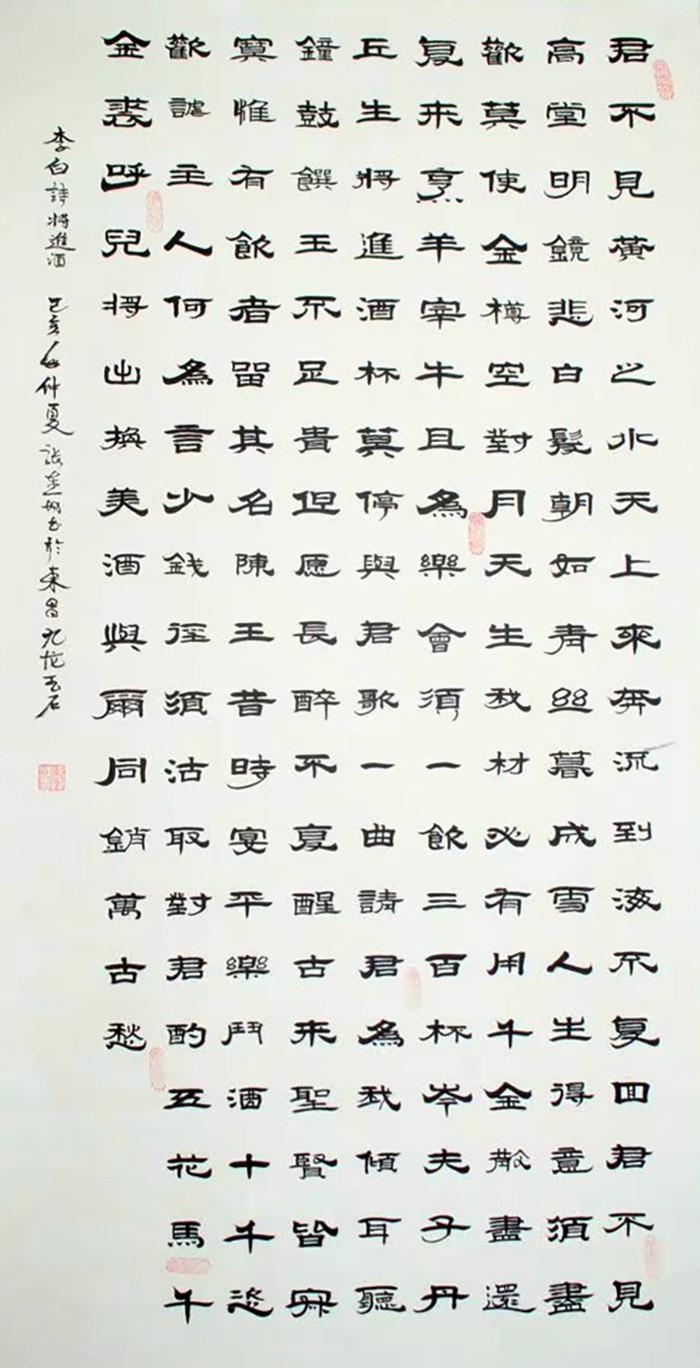 君不見黃河之水天上來奔流到海不复回君不見
高堂明鏡悲白髮朝如青丝暮成雪人生得意須盡
歡莫使金樽空對月天生我材必有用千金散盡還
复来烹羊宰牛且為樂會須一飲三百杯岑夫子丹
丘生將進酒杯莫停與君歌一曲請君為我傾耳聽
鐘鼓饌玉不足貴但愿長醉不复醒古来聖賢皆寂
寞惟有飲者留其名陳王昔時宴平樂鬥酒十千恣
歡謔主人何為言少錢徑須沽取對君酌五花馬千
金裘呼兒将出換美酒與爾同銷萬古愁
李白詩將進酒 己亥年仲夏 书於東昌